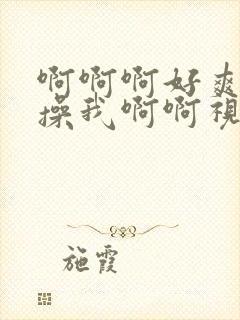 啊啊啊好爽
操我啊啊视
施霞